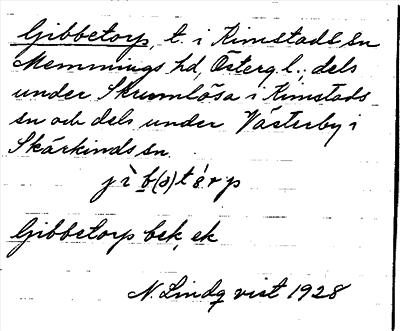 Gibbetorp, t. i Kimstads sn
Memmings hd, Österg. l.; dels
under Skrumlösa i Kimstads
sn och dels under Västerby i
Skärkinds sn.
Gibbetorp bek, ek
N. Lindqvist 1928